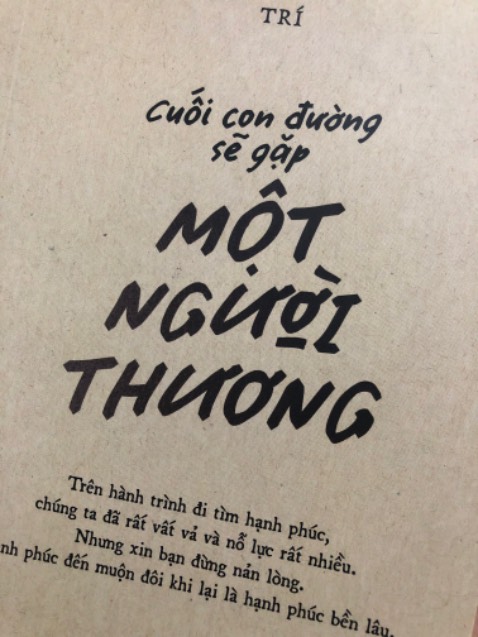 TRÍ
Cuối con đường
sẽ gặp
MỘT
NGƯỜI
THƯƠNG
Trên hành trình đi tìm hạnh phúc,
chúng ta đã rất vất vả và nỗ lực rất nhiều.
Nhưng xin bạn đừng nản lòng.
phúc đến muộn đôi khi lại là hạnh phúc bền lâu.